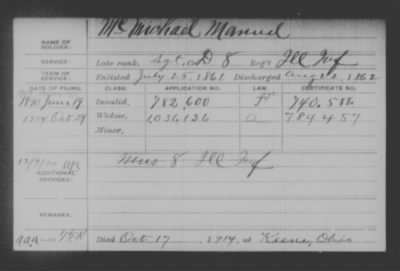 Mc Michael Manuel
NAME OF SOLDIER:
SERVICE: Late rank, Sgt. Co. D 8 Reg't Ill Inf
TERM OF SERVICE: Enlisted July 25, 1861 Discharged Aug 2, 1862
DATE OF FILING. CLASS. APPLICATION NO. LAW. CERTIFICATE NO.
1890 June 19 Invalid, 782,600 740.588
1914 Oct 29 Widow, 1,036,136 a 784457
Minor,
ADDITIONAL SERVICES: 8 Ill Inf
REMARKS:
Died Oct 17, 1914, at Ohio